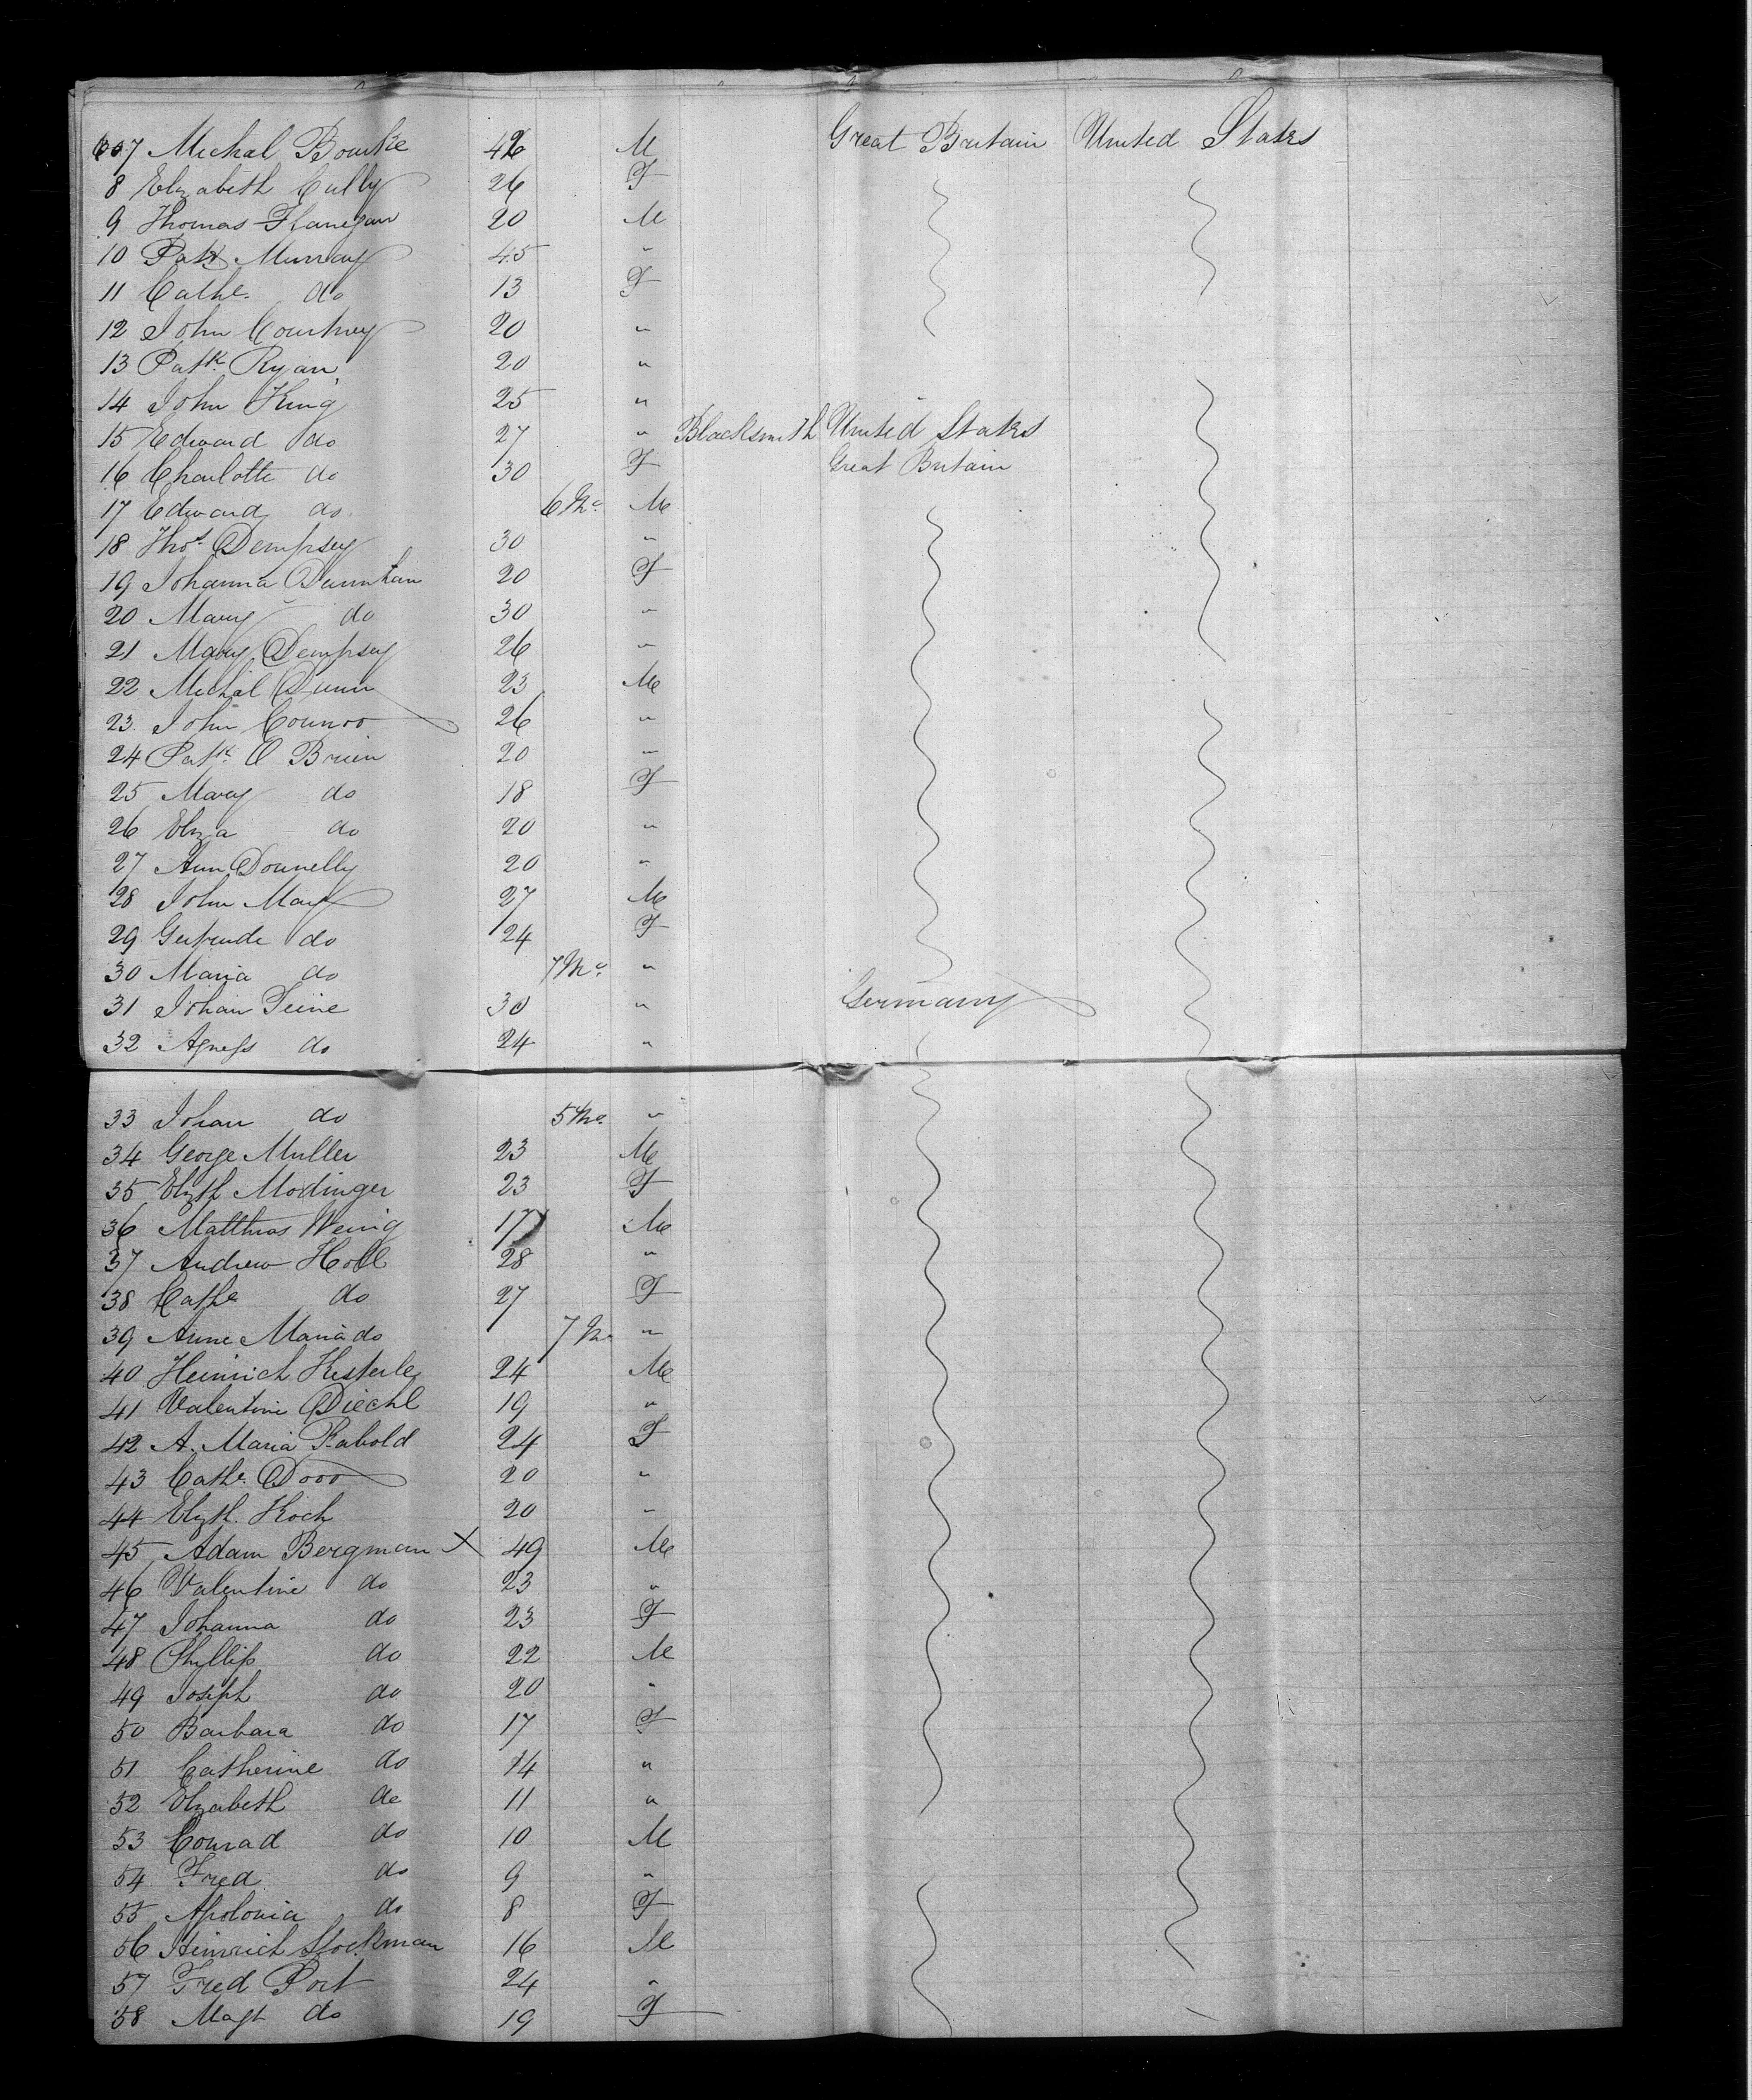 607 Michal Bourke 46 M Great Britain United States
8 Elizabeth Cully 26 F
9 Thomas Flanegan 20 M
10 Patk Murray 45 "
11 Cathe. do 13 F
12 John Courtney 20 "
13 Patk. Ryan 20 "
14 John King 25 "
15 Edward do 27 " Blacksmith United States
16 Charlotte do 30 F Great Britain
17 Edward do. 6 Mo. M
18 Thos. Dempsey 30 "
19 Johanna 20 F
20 Mary do 30 "
21 Mary Dempsey 26 "
22 Michal Dunn 23 M
23 John 26 "
24 Patk. O Brien 20 "
25 Mary do 18 F
26 Eliza do 20 "
27 Ann Donnelly 20 "
28 John May 27 M
29 Gertrude do 24 F
30 Maria do 7 Mo. "
31 Johan 30 " Germany
32 Agness do 24 "
33 Johan do 5 Mo. "
34 George Muller 23 M
35 Elizth Modinger 23 F
36 Matthias Weinig 17 M
37 Andrew Holl 28 "
38 Cathe do 27 F
39 Anne Maria do 7 M. "
40 Heinrich Kesterle 24 M
41 Valentine Diechl 19 "
42 A. Maria Rabold 24 F
43 Cathe. 20 "
44 Elizth. Koch 20 "
45 Adam Bergman X 49 M
46 Valentine do 23 "
47 Johanna do 23 F
48 Phyllip do 22 M
49 Joseph do 20 "
50 Barbara do 17 F
51 Catherine do 14 "
52 Elizabeth do 11 "
53 Conrad do 10 M
54 Fred do 9 "
55 Apolonia do 8 F
56 Heinrich Stockman 16 M
57 Fred Port 24 "
58 Magt do 19 F